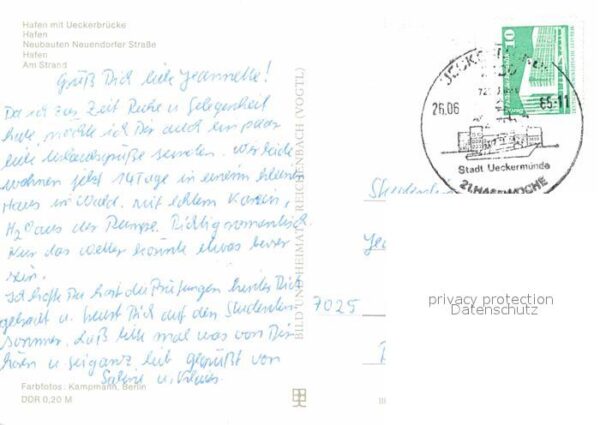 Hafen mit Ueckerbrücke
Hafen
Neubauten Neuendorfer Straße
Hafen
Am Strand
Grüß Dich liebe Jeannette!
Da ich zur Zeit Ruhe u Gelegenheit
habe möchte ich Dir auch ein paar
liebe Urlaubsgrüße senden. Wir beide
wohnen jetzt 14 Tage in einem kleinen
Haus im Wald. Mit
H₂O aus der Pumpe. Richtig romantisch
Nur das Wetter könnte etwas besser
sein.
Ich hoffe Du hast die Prüfungen hinter Dich
gebracht u. freust Dich auf den Studenten-
sommer. Laß bitte mal was von Dir
hören u sei ganz lieb gegrüßt von
Farbfotos: Kampmann, Berlin
DDR 0,20 M
BILD UND HEIMAT REICHENBACH (VOGTL)
10
26.06
85-11
Stadt Ueckermünde
21. HAFFWOCHE
7025
privacy protection
Datenschutz